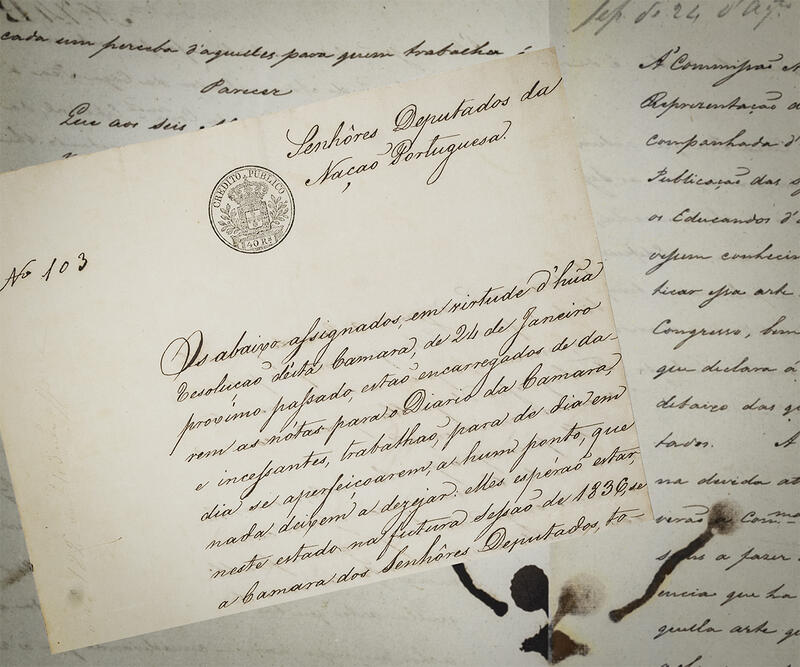 cada um perceba d'aquelles para quem trabalha é
Parecer
Que aos seis
Sep. de 24 d'Ag.to
Senhôres Deputados da
Nação Portuguesa.
CREDITO PUBLICO
40 Rs
No 103
Os abaixo assignados, em virtude d'hũa
Resolucaõ d'esta Camara, de 24 de Janeiro
proximo passado, estaõ encarregados de da-
rem as nótas para o Diario da Camara,
e incessantes, trabalhaõ, para de dia em
dia se aperfeicoarem, a hum ponto, que
nada deixem a dezejar. Elles espéraõ estar,
neste estado na futura sessaõ de 1836, se
a Camara dos Senhôres Deputados, to-
A Commissaõ
Representação
companhada d'
Publicação das
os Educandos d'
vessem conheci
ticar essa arte
Congresso, bem
que declara á
debaixo das qu
tados. A
na devida at
verão a Com.
a fazer
encia que ha
quella arte